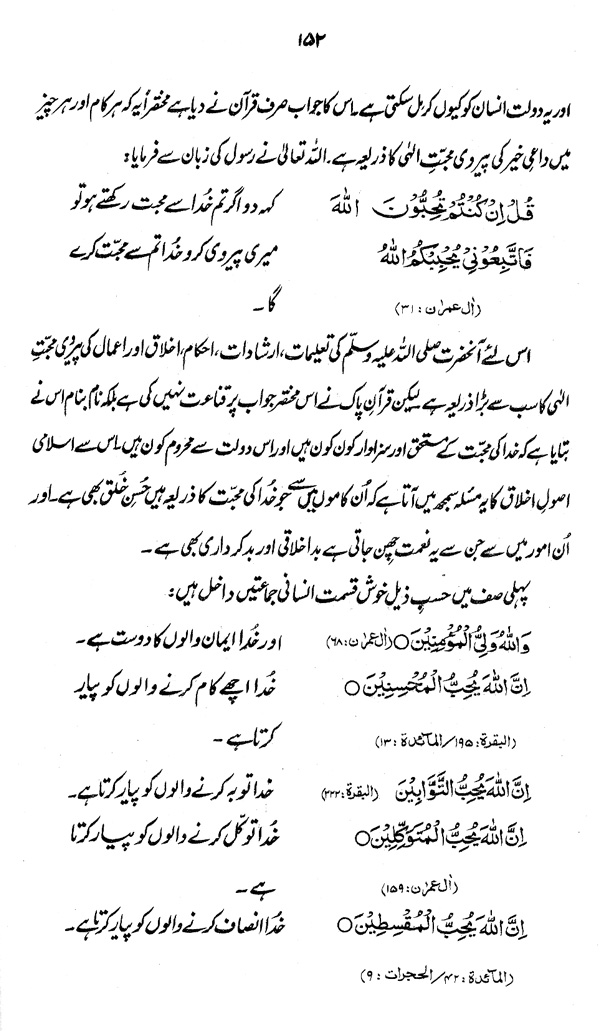 ۱۵۲
اور یہ دولت انسان کو کیوں کر مل سکتی ہے۔ اس کا جواب صرف قرآن نے دیا ہے مختصراً یہ کہ ہر کام اور ہر چیز
میں داعیِ خیر کی پیروی محبّتِ الٰہی کا ذریعہ ہے۔ اللہ تعالیٰ نے رسول کی زبان سے فرمایا:
قُلْ اِنْ كُنْتُمْ تُحِبُّوْنَ اللّٰهَ کہہ دو اگر تم خُدا سے محبت رکھتے ہو تو
فَاتَّبِعُوْنِيْ يُحْبِبْكُمُ اللّٰهُ میری پیروی کرو خُدا تم سے محبّت کرے
(اٰل عمرٰن: ۳۱) گا۔
اس لئے آنحضرت صلی اللہ علیہ وسلّم کی تعلیمات، ارشادات، احکام، اخلاق اور اعمال کی پیرویِ محبّتِ
الٰہی کا سب سے بڑا ذریعہ ہے لیکن قرآنِ پاک نے اس مختصر جواب پر قناعت نہیں کی ہے بلکہ نام بنام اس نے
بتایا ہے کہ خدا کی محبّت کے مستحق اور سزاوار کون کون ہیں اور اس دولت سے محروم کون ہیں۔ اس سے اسلامی
اصولِ اخلاق کا یہ مسئلہ سمجھ میں آتا ہے کہ اُن کاموں میں سے جو خُدا کی محبّت کا ذریعہ ہیں حُسنِ خُلق بھی ہے۔ اور
اُن امور میں سے جن سے یہ نعمت چھِن جاتی ہے بداخلاقی اور بدکرداری بھی ہے۔
پہلی صف میں حسبِ ذیل خوش قسمت انسانی جماعتیں داخل ہیں:
وَاللّٰهُ وَلِيُّ الْمُؤْمِنِيْنَ○ (اٰل عمرٰن: ۶۸) اور خُدا ایمان والوں کا دوست ہے۔
اِنَّ اللّٰهَ يُحِبُّ الْمُحْسِنِيْنَ○ خُدا اچھے کام کرنے والوں کو پیار
(البقرة: ۱۹۵/المآئدة: ۱۳) کرتا ہے۔
اِنَّ اللّٰهَ يُحِبُّ التَّوَّابِيْنَ (البقرة: ۲۲۲) خدا توبہ کرنے والوں کو پیار کرتا ہے۔
اِنَّ اللّٰهَ يُحِبُّ الْمُتَوَكِّلِيْنَ○ خُدا توکّل کرنے والوں کو پیار کرتا
(اٰل عمرٰن: ۱۵۹) ہے۔
اِنَّ اللّٰهَ يُحِبُّ الْمُقْسِطِيْنَ○ خُدا انصاف کرنے والوں کو پیار کرتا ہے۔
(المآئدة: ۴۲/الحجرات: ۹)